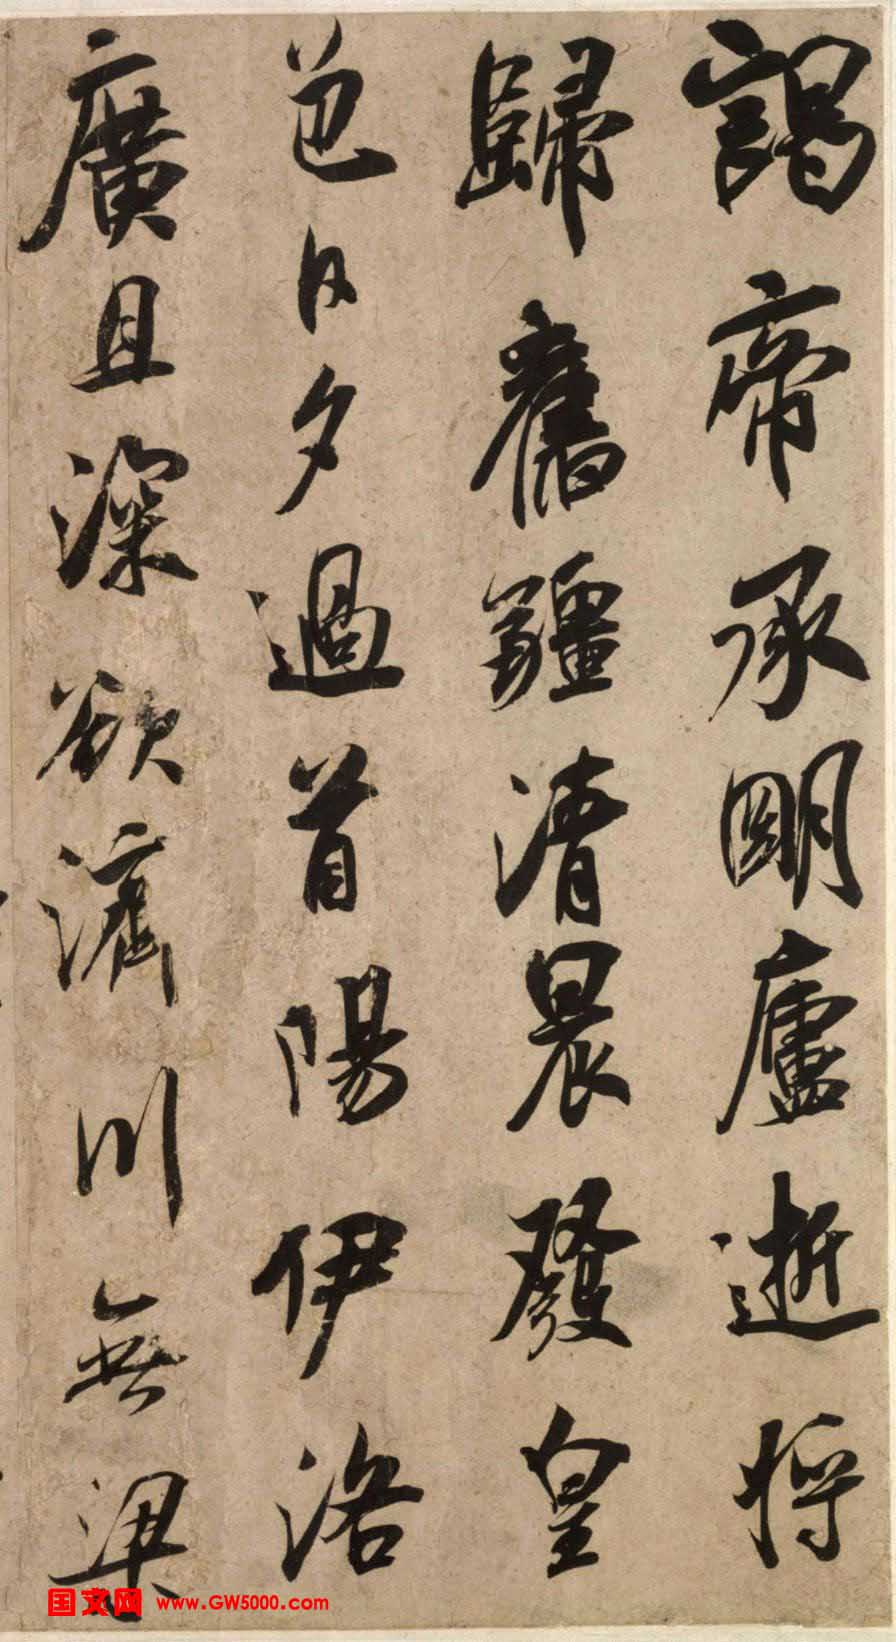 謁帝承明廬逝将
歸舊疆清晨發皇
邑日夕過首陽伊洛
廣且深欲濟川無梁
国文网 www.GW5000.com